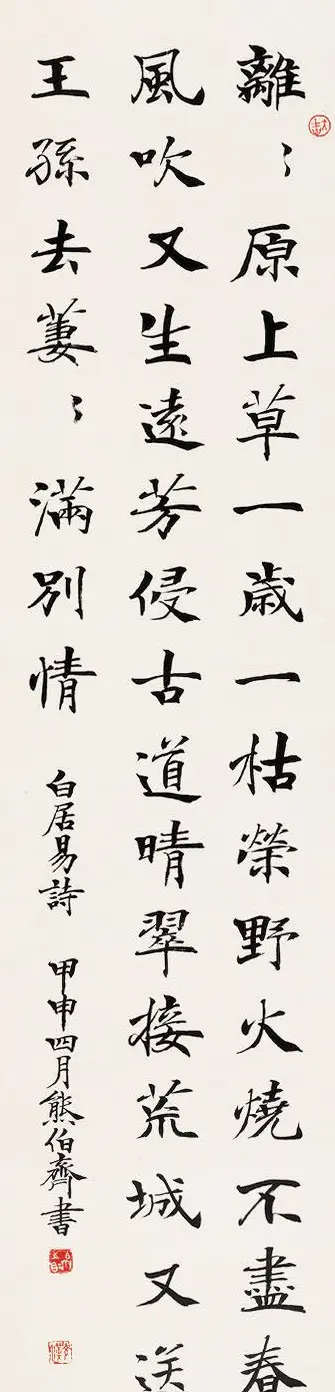 離〻原上草一歲一枯榮野火燒不盡春
風吹又生遠芳侵古道晴翠接荒城又送
王孫去萋〻滿別情 白居易詩 甲申四月熊伯齊書